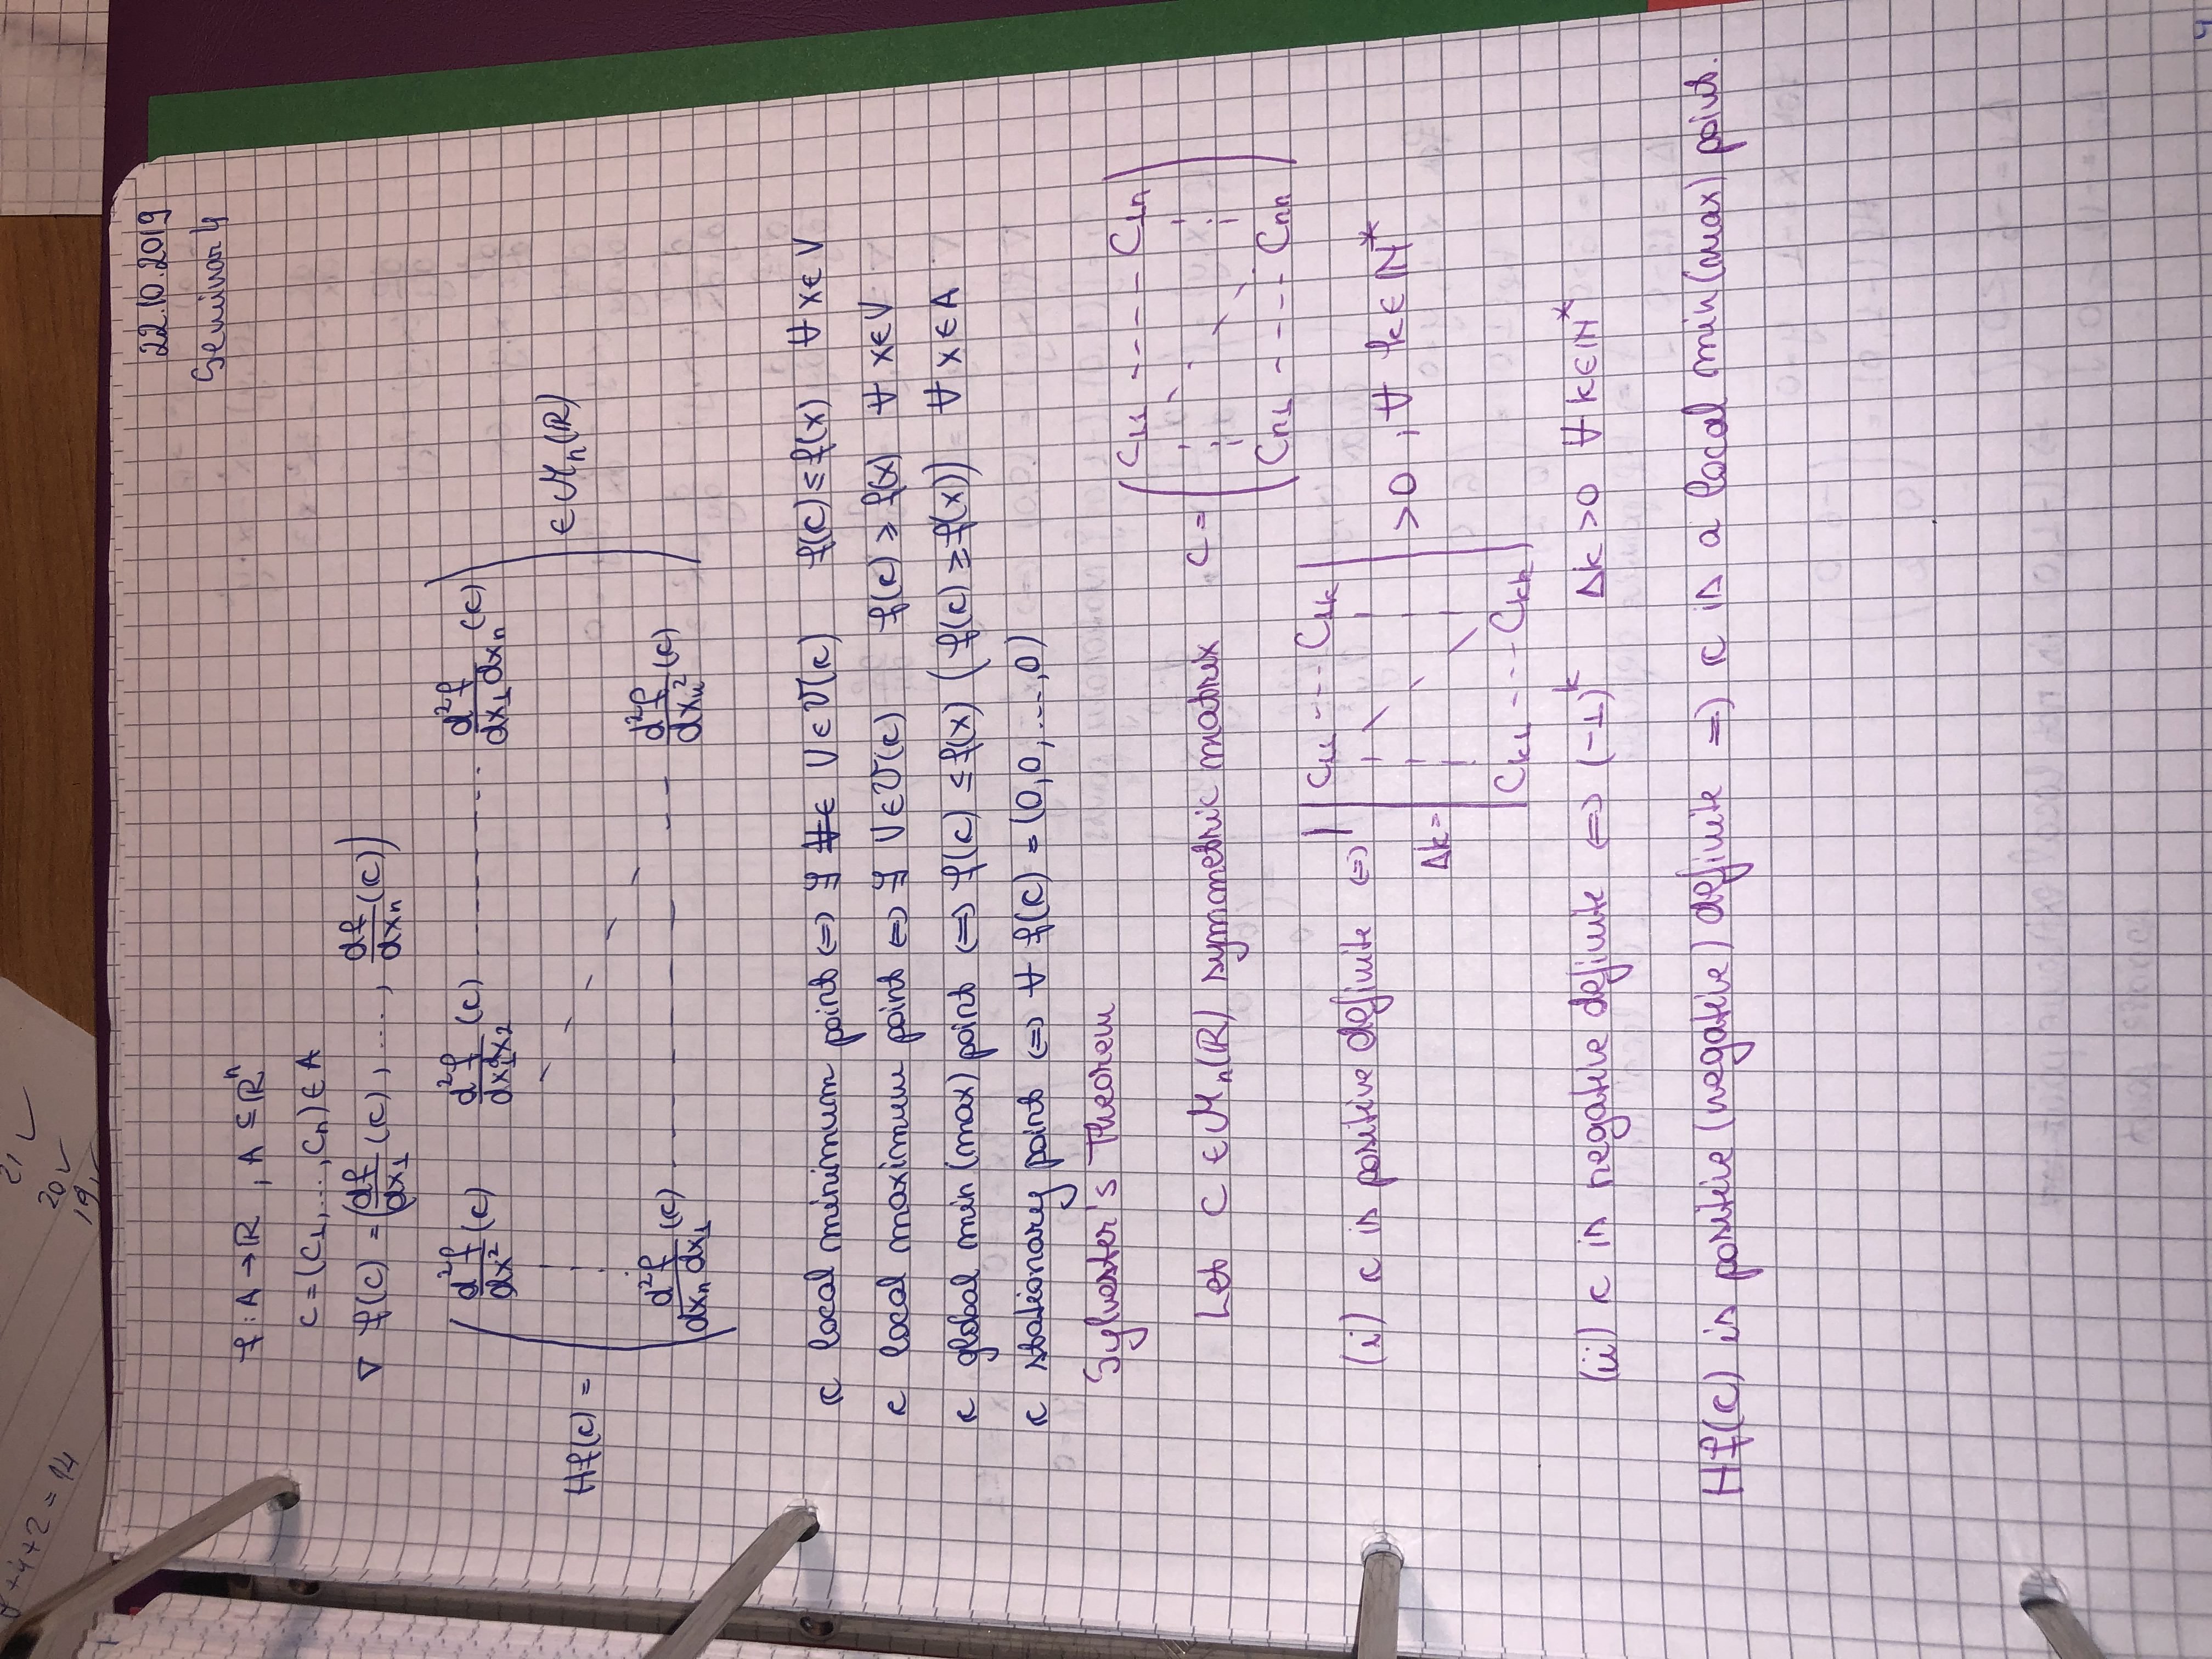 +4+2=14
21 ✓
20 ✓
19 ✓
22.10.2019
Seminar 4
f : A → ℝ , A ⊆ ℝⁿ
c = (c₁, ..., cₙ) ∈ A
∇ f(c) = (df/dx₁ (c), ..., df/dxₙ (c))
Hf(c) = ( d²f/dx² (c) d²f/dx₁dx₂ (c) ------- d²f/dx₁dxₙ (c)
d²f/dxₙdx₁ (c) ------- d²f/dxₙ² (c) ) ∈ ℳₙ(ℝ)
c local minimum point ⇔ ∃ V ∈ 𝒱(c) f(c) ≤ f(x) ∀ x ∈ V
c local maximum point ⇔ ∃ V ∈ 𝒱(c) f(c) ≥ f(x) ∀ x ∈ V
c global min (max) point ⇔ f(c) ≤ f(x) (f(c) ≥ f(x)) ∀ x ∈ A
c stationary point ⇔ ∀ f(c) = (0,0,...,0)
Sylvester's Theorem
Let C ∈ ℳₙ(ℝ) symmetric matrix C = ( C₁₁ ---- C₁ₙ
Cₙ₁ ---- Cₙₙ )
(i) C is positive definite ⇔ Δk = | C₁₁ --- C₁ₖ
Cₖ₁ --- Cₖₖ | > 0 , ∀ k ∈ ℕ*
(ii) C is negative definite ⇔ (-1)ᵏ Δk > 0 ∀ k ∈ ℕ*
Hf(c) is positive (negative) definite ⇒ c is a local min (max) point.